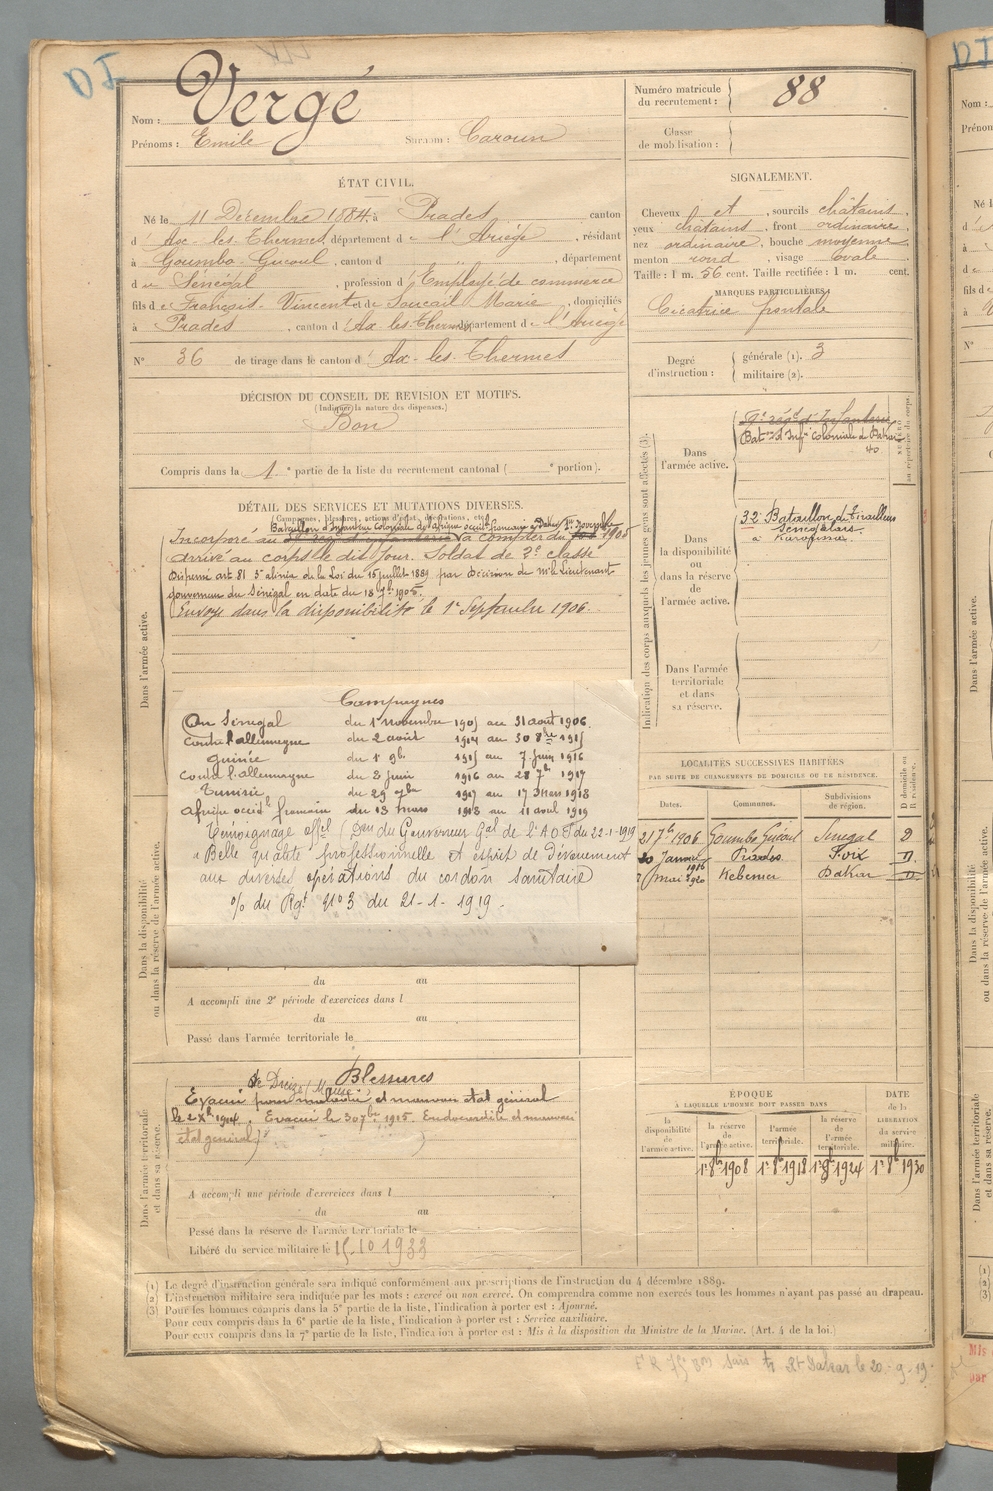 Nom : Vergé
Prénoms : Emile Surnom : Caroun
Numéro matricule du recrutement : 88
Classe de mobilisation :
ÉTAT CIVIL.
Né le 11 Décembre 1884, à Prades canton
d' Ax-les-Thermes, département de l'Ariège, résidant
à Goumbo-Guéoul, canton d " , département
du Sénégal, profession d'Employé de commerce
fils de François-Vincent et de Marie, domiciliés
à Prades, canton d'Ax-les-Thermes, département de l'Ariège
N° 36 de tirage dans le canton d'Ax-les-Thermes
SIGNALEMENT.
Cheveux et, sourcils châtains,
yeux châtains, front ordinaire,
nez ordinaire, bouche moyenne
menton rond, visage ovale
Taille : 1 m. 56 cent. Taille rectifiée : 1 m. cent.
MARQUES PARTICULIÈRES :
Cicatrice frontale
Degré d'instruction : générale (1). 3
militaire (2).
DÉCISION DU CONSEIL DE REVISION ET MOTIFS.
(Indiquer la nature des dispenses.)
Bon
Compris dans la 1e partie de la liste du recrutement cantonal ( e portion).
DÉTAIL DES SERVICES ET MUTATIONS DIVERSES.
(Campagnes, blessures, actions d'éclat, décorations, etc.)
Bataillon d'Infanterie Coloniale de l'Afrique occid. française à Dakar 1er Novembre
Incorporé au à compter du 1905
arrivé au corps le dit jour. Soldat de 2e classe
Dispensé art 81 5e alinéa de la Loi du 15 juillet 1889 par décision de Mr le Lieutenant
gouverneur du Sénégal en date du 18 7bre 1905.
Envoyé dans la disponibilité le 1er Septembre 1906.
Campagnes
Au Sénégal du 1er novembre 1905 au 31 août 1906.
Contre l'allemagne du 2 août 1914 au 30 8bre 1915
Guinée du 1er 9bre 1915 au 7 juin 1916
Contre l'allemagne du 8 juin 1916 au 28 7bre 1917
Tunisie du 29 7bre 1917 au 17 mars 1918
Afrique occidle française du 18 mars 1918 au 11 avril 1919
Témoignage offel du Gouverneur Gal de l'A.O.F. du 22-1-1919
"Belle qualité professionnelle et esprit de dévouement
aux diverses opérations du cordon sanitaire
% du Rgt N° 3 du 21-1-1919.
Dans l'armée active.
Dans la disponibilité ou dans la réserve de l'armée active.
Dans l'armée territoriale et dans sa réserve.
Indication des corps auxquels les jeunes gens sont affectés (3).
Dans l'armée active.
9e régt d'Infanterie
Baton d'Infie Coloniale de Dakar
40
Dans la disponibilité ou dans la réserve de l'armée active.
32 Bataillon de Tirailleurs
Sénégalais
Dans l'armée territoriale et dans sa réserve.
LOCALITÉS SUCCESSIVES HABITÉES
PAR SUITE DE CHANGEMENTS DE DOMICILE OU DE RÉSIDENCE.
Dates. Communes. Subdivisions de région. D domicile ou R résidence.
21 7bre 1906 Goumbo Guéoul Sénégal D
20 Janvier 1916 Prades Foix D.
mai 1920 Kébémer Dakar D
du au
A accompli une 2e période d'exercices dans l
du au
Passé dans l'armée territoriale le
Blessures
Evacué pour et mauvais état général
le 2 Xbre 1914. Evacué le 30 7bre 1915. Endocardite et mauvais
état général
A accompli une période d'exercices dans l
du au
Passé dans la réserve de l'armée territoriale le
Libéré du service militaire le 15.10 1933
EPOQUE
A LAQUELLE L'HOMME DOIT PASSER DANS
la disponibilité de l'armée active. la réserve de l'armée active. l'armée territoriale. la réserve de l'armée territoriale. DATE de la LIBÉRATION du service militaire.
1er 8bre 1908 1er 8bre 1918 1er 8bre 1924 1er 8bre 1930
(1) Le degré d'instruction générale sera indiqué conformément aux prescriptions de l'instruction du 4 décembre 1889.
(2) L'instruction militaire sera indiquée par les mots : exercé ou non exercé. On comprendra comme non exercés tous les hommes n'ayant pas passé au drapeau.
(3) Pour les hommes compris dans la 5e partie de la liste, l'indication à porter est : Ajourné.
Pour ceux compris dans la 6e partie de la liste, l'indication à porter est : Service auxiliaire.
Pour ceux compris dans la 7e partie de la liste, l'indication à porter est : Mis à la disposition du Ministre de la Marine. (Art. 4 de la loi.)